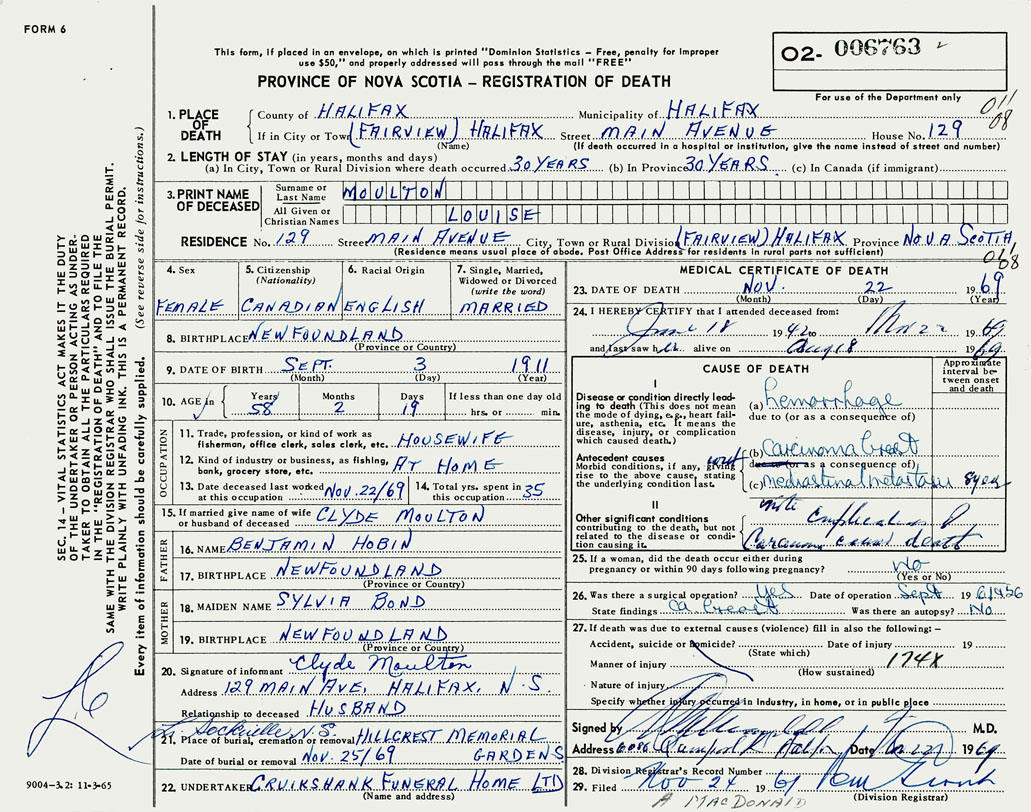 FORM 6
This form, if placed in an envelope, on which is printed "Dominion Statistics – Free, penalty for improper
use $50," and properly addressed will pass through the mail "FREE"
O2- 006763
PROVINCE OF NOVA SCOTIA – REGISTRATION OF DEATH
For use of the Department only
011/08
1. PLACE OF DEATH
County of HALIFAX Municipality of HALIFAX
If in City or Town (FAIRVIEW) HALIFAX Street MAIN AVENUE House No. 129
(Name) (If death occurred in a hospital or institution, give the name instead of street and number)
2. LENGTH OF STAY (in years, months and days)
(a) In City, Town or Rural Division where death occurred 30 YEARS (b) In Province 30 YEARS (c) In Canada (if immigrant)
3. PRINT NAME OF DECEASED
Surname or Last Name MOULTON
All Given or Christian Names LOUISE
RESIDENCE No. 129 Street MAIN AVENUE City, Town or Rural Division (FAIRVIEW) HALIFAX Province NOVA SCOTIA
(Residence means usual place of abode. Post Office Address for residents in rural parts not sufficient)
011/08
SEC. 14 – VITAL STATISTICS ACT MAKES IT THE DUTY
OF THE UNDERTAKER OR PERSON ACTING AS UNDER-
TAKER TO OBTAIN ALL THE PARTICULARS REQUIRED
IN THE "REGISTRATION OF DEATH" AND TO FILE THE
SAME WITH THE DIVISION REGISTRAR WHO SHALL ISSUE THE BURIAL PERMIT.
WRITE PLAINLY WITH UNFADING INK. THIS IS A PERMANENT RECORD.
Every item of information should be carefully supplied. (See reverse side for instructions.)
4. Sex
FEMALE
5. Citizenship (Nationality)
CANADIAN
6. Racial Origin
ENGLISH
7. Single, Married, Widowed or Divorced (write the word)
MARRIED
8. BIRTHPLACE NEWFOUNDLAND
(Province or Country)
9. DATE OF BIRTH SEPT. 3 1911
(Month) (Day) (Year)
10. AGE in Years 58 Months 2 Days 19 If less than one day old hrs. or min.
OCCUPATION
11. Trade, profession, or kind of work as
fisherman, office clerk, sales clerk, etc. HOUSEWIFE
12. Kind of industry or business, as fishing,
bank, grocery store, etc. AT HOME
13. Date deceased last worked at this occupation NOV. 22/69
14. Total yrs. spent in this occupation 35
15. If married give name of wife
or husband of deceased CLYDE MOULTON
FATHER
16. NAME BENJAMIN HOBIN
17. BIRTHPLACE NEWFOUNDLAND
(Province or Country)
MOTHER
18. MAIDEN NAME SYLVIA BOND
19. BIRTHPLACE NEWFOUNDLAND
(Province or Country)
20. Signature of informant Clyde Moulton
Address 129 MAIN AVE, HALIFAX, N.S.
Relationship to deceased HUSBAND
Sackville N.S.
21. Place of burial, cremation or removal HILLCREST MEMORIAL
Date of burial or removal NOV. 25/69 GARDENS
22. UNDERTAKER CRUIKSHANK FUNERAL HOME LTD
(Name and address)
9004-3.2: 11-3-65
MEDICAL CERTIFICATE OF DEATH
23. DATE OF DEATH NOV. 22 1969
(Month) (Day) (Year)
24. I HEREBY CERTIFY that I attended deceased from:
June 18 1942 to Nov 22 1969
and last saw her alive on Aug 18 1969
CAUSE OF DEATH
Approximate interval between onset and death
I
Disease or condition directly lead-
ing to death (This does not mean
the mode of dying, e.g., heart fail-
ure, asthenia, etc. It means the
disease, injury, or complication
which caused death.)
(a) hemorrhage
due to (or as a consequence of)
Antecedent causes
Morbid conditions, if any, giving
rise to the above cause, stating
the underlying condition last.
(b) Carcinoma breast
due to (or as a consequence of)
(c) mediastinal metastasis 8 years
II
Other significant conditions
contributing to the death, but not
related to the disease or condi-
tion causing it.
Carcinoma caused death
25. If a woman, did the death occur either during
pregnancy or within 90 days following pregnancy? No
(Yes or No)
26. Was there a surgical operation? Yes Date of operation Sept 19 61 & 56
State findings Ca. breast Was there an autopsy? No
27. If death was due to external causes (violence) fill in also the following: –
Accident, suicide or homicide? Date of injury 19
(State which)
Manner of injury 174X
(How sustained)
Nature of injury
Specify whether injury occurred in industry, in home, or in public place
Signed by M.D.
Address Date 1969
28. Division Registrar's Record Number
29. Filed Nov 24 19
(Division Registrar)
A MACDONALD